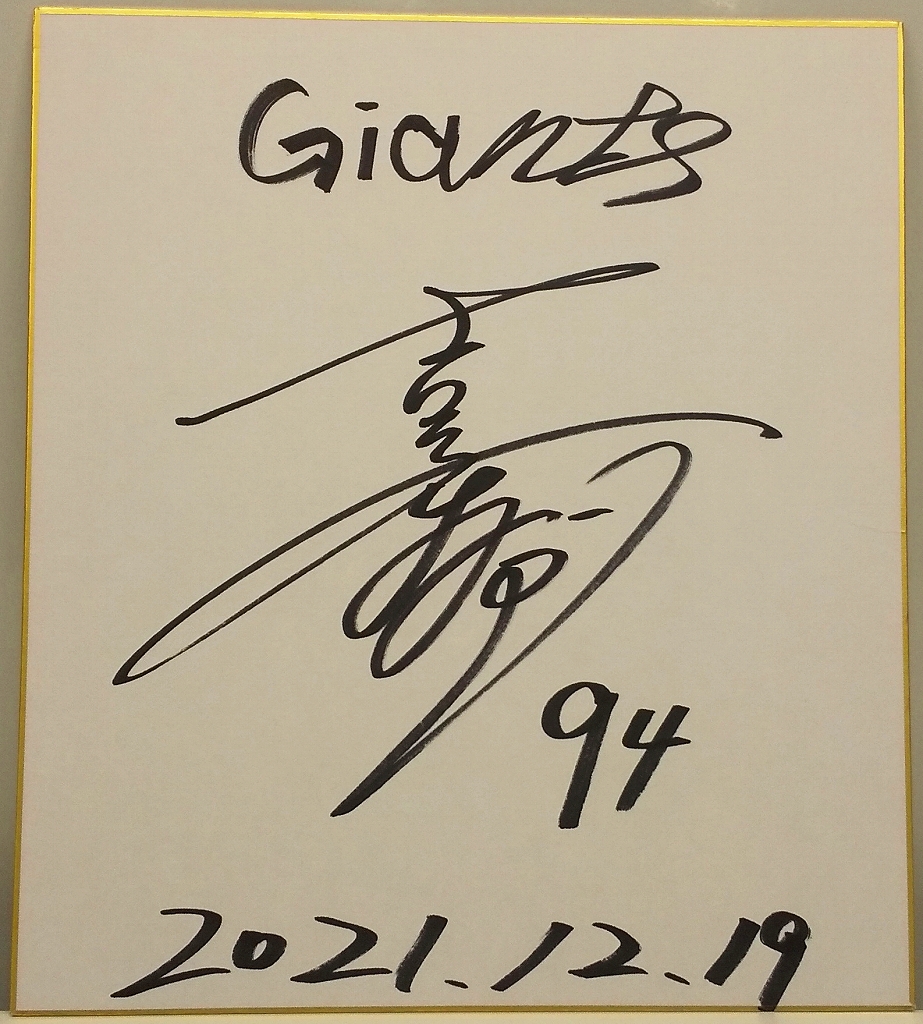 Giants
94
2021.12.19